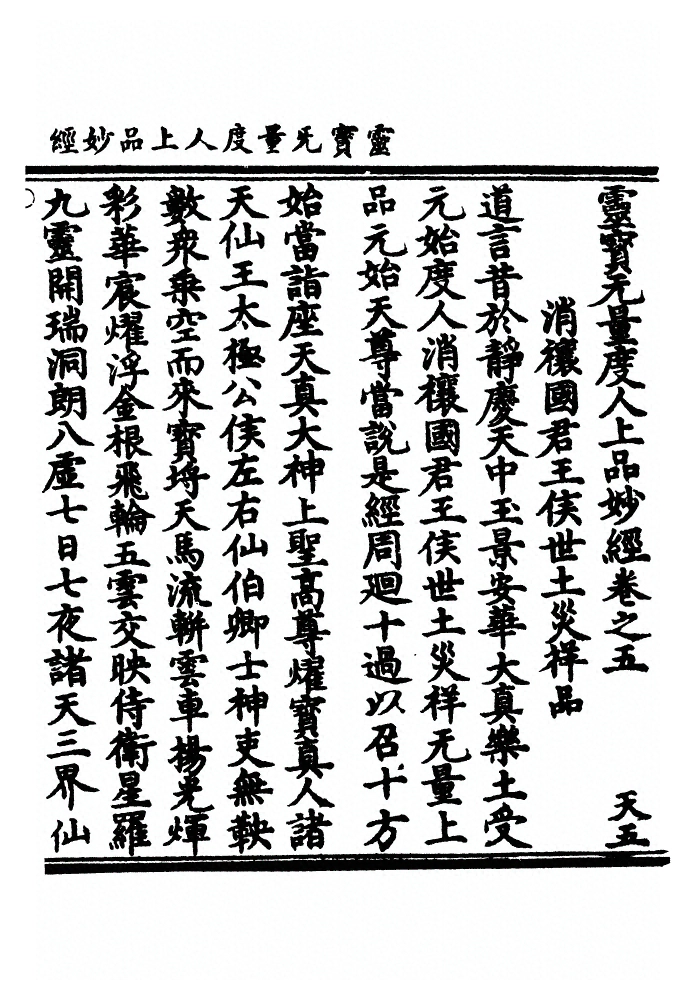 靈寶无量度人上品妙經
靈寶无量度人上品妙經卷之五　天五
消禳國君王侯世土災祥品
道言昔於靜慶天中玉景安華大真樂土受
元始度人消禳國君王侯世土災祥无量上
品元始天尊當說是經周廻十過以召十方
始當詣座天真大神上聖高尊燿寶真人諸
天仙王太極公侯左右仙伯卿士神吏無鞅
數衆乗空而來寳埓天馬流軿雲車揚光煇
彩華宸燿浮金根飛輪五雲交映侍衛星羅
九靈開瑞洞朗八虛七日七夜諸天三界仙